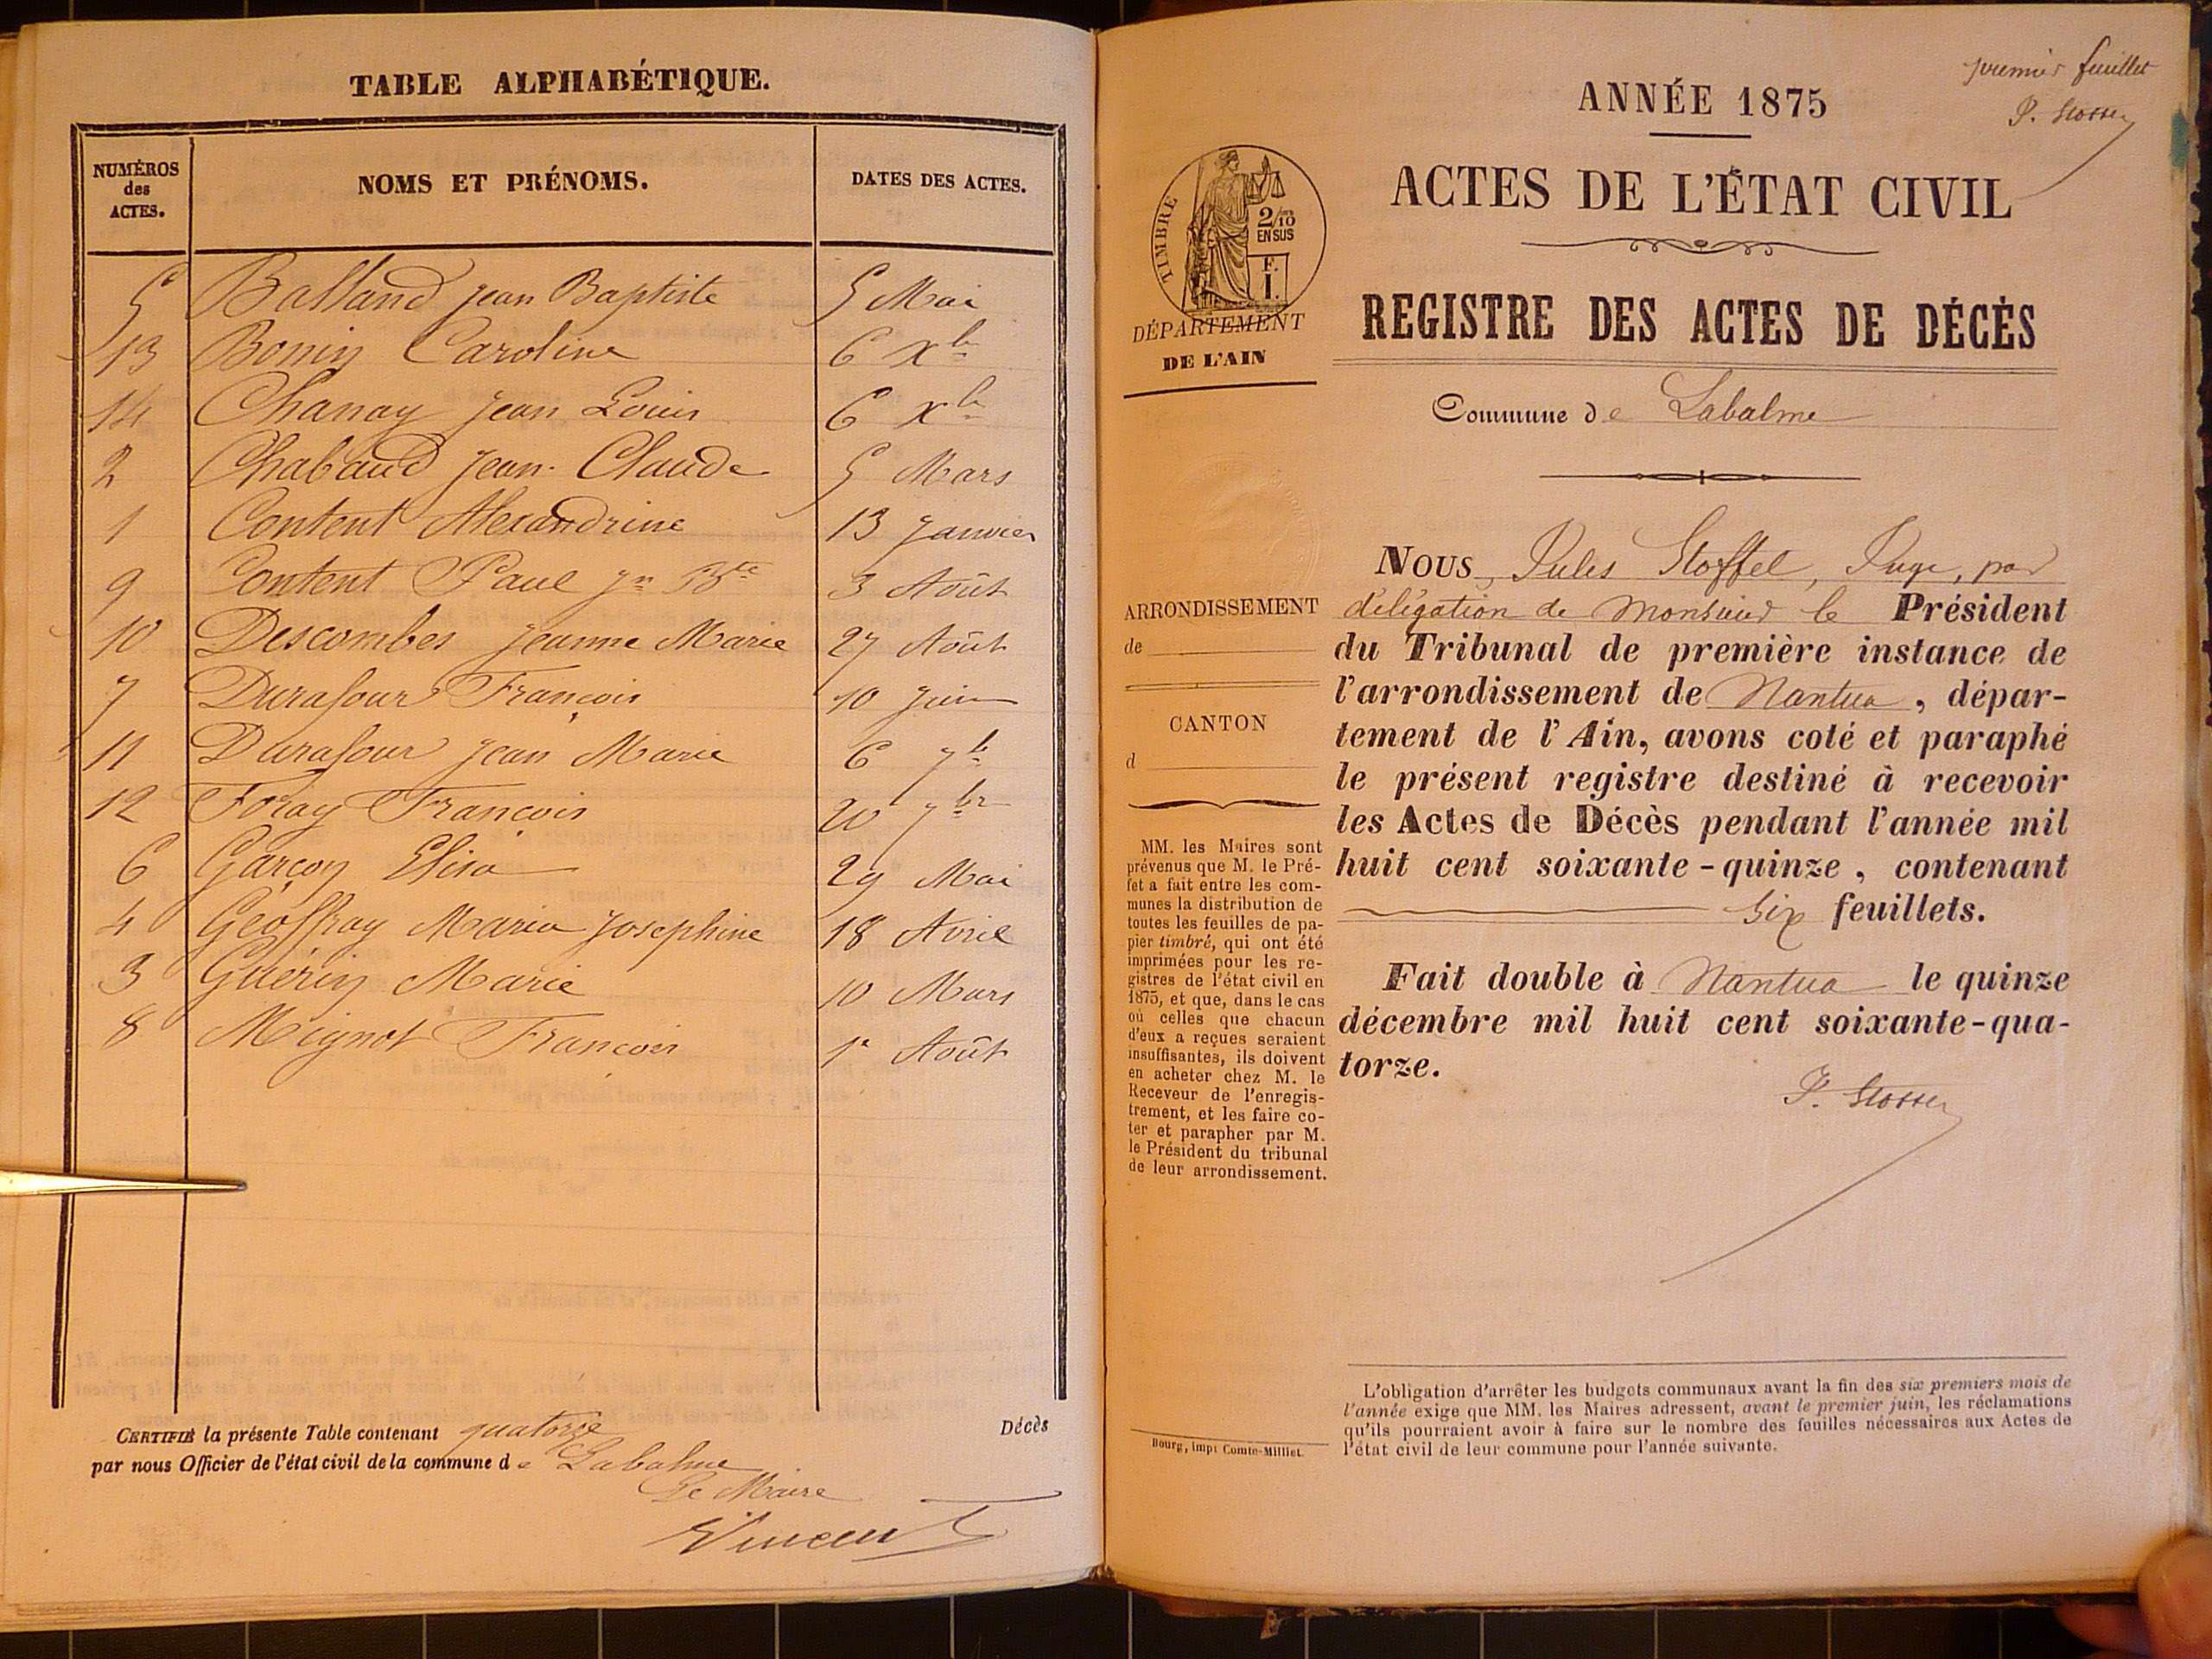 TABLE ALPHABÉTIQUE.
NUMÉROS des ACTES. NOMS ET PRÉNOMS. DATES DES ACTES.
5 Balland Jean Baptiste 5 Mai
13 Bonin Caroline 6 Xbre
14 Chanay Jean Louis 6 Xbre
2 Chabaud Jean-Claude 5 Mars
1 Content Alexandrine 13 Janvier
9 Content Paul Jn Bte 3 Août
10 Descombes Jeanne Marie 27 Août
7 Durafour François 10 Juin
11 Durafour Jean Marie 6 7bre
12 Foray François 20 7bre
6 Garçon Elisa 29 Mai
4 Geoffray Maria Josephine 18 Avril
3 Guérin Marie 10 Mars
8 Mignot François 1er Août
CERTIFIÉ la présente Table contenant quatorze Décès
par nous Officier de l'état civil de la commune de Labalme
Le Maire
Vincent
premier feuillet
ANNÉE 1875
ACTES DE L'ÉTAT CIVIL
TIMBRE
2/10
EN SUS
F.
1.
DÉPARTEMENT
DE L'AIN
REGISTRE DES ACTES DE DÉCÈS
Commune de Labalme
ARRONDISSEMENT
de
CANTON
d
MM. les Maires sont
prévenus que M. le Pré-
fet a fait entre les com-
munes la distribution de
toutes les feuilles de pa-
pier timbré, qui ont été
imprimées pour les re-
gistres de l'état civil en
1875, et que, dans le cas
où celles que chacun
d'eux a reçues seraient
insuffisantes, ils doivent
en acheter chez M. le
Receveur de l'enregis-
trement, et les faire co-
ter et parapher par M.
le Président du tribunal
de leur arrondissement.
Bourg, impr Comte-Milliet.
NOUS, Jules Stoffel, Juge, par
délégation de Monsieur le Président
du Tribunal de première instance de
l'arrondissement de Nantua, dépar-
tement de l'Ain, avons coté et paraphé
le présent registre destiné à recevoir
les Actes de Décès pendant l'année mil
huit cent soixante-quinze, contenant
six feuillets.
Fait double à Nantua le quinze
décembre mil huit cent soixante-qua-
torze.
L'obligation d'arrêter les budgets communaux avant la fin des six premiers mois de
l'année exige que MM. les Maires adressent, avant le premier juin, les réclamations
qu'ils pourraient avoir à faire sur le nombre des feuilles nécessaires aux Actes de
l'état civil de leur commune pour l'année suivante.